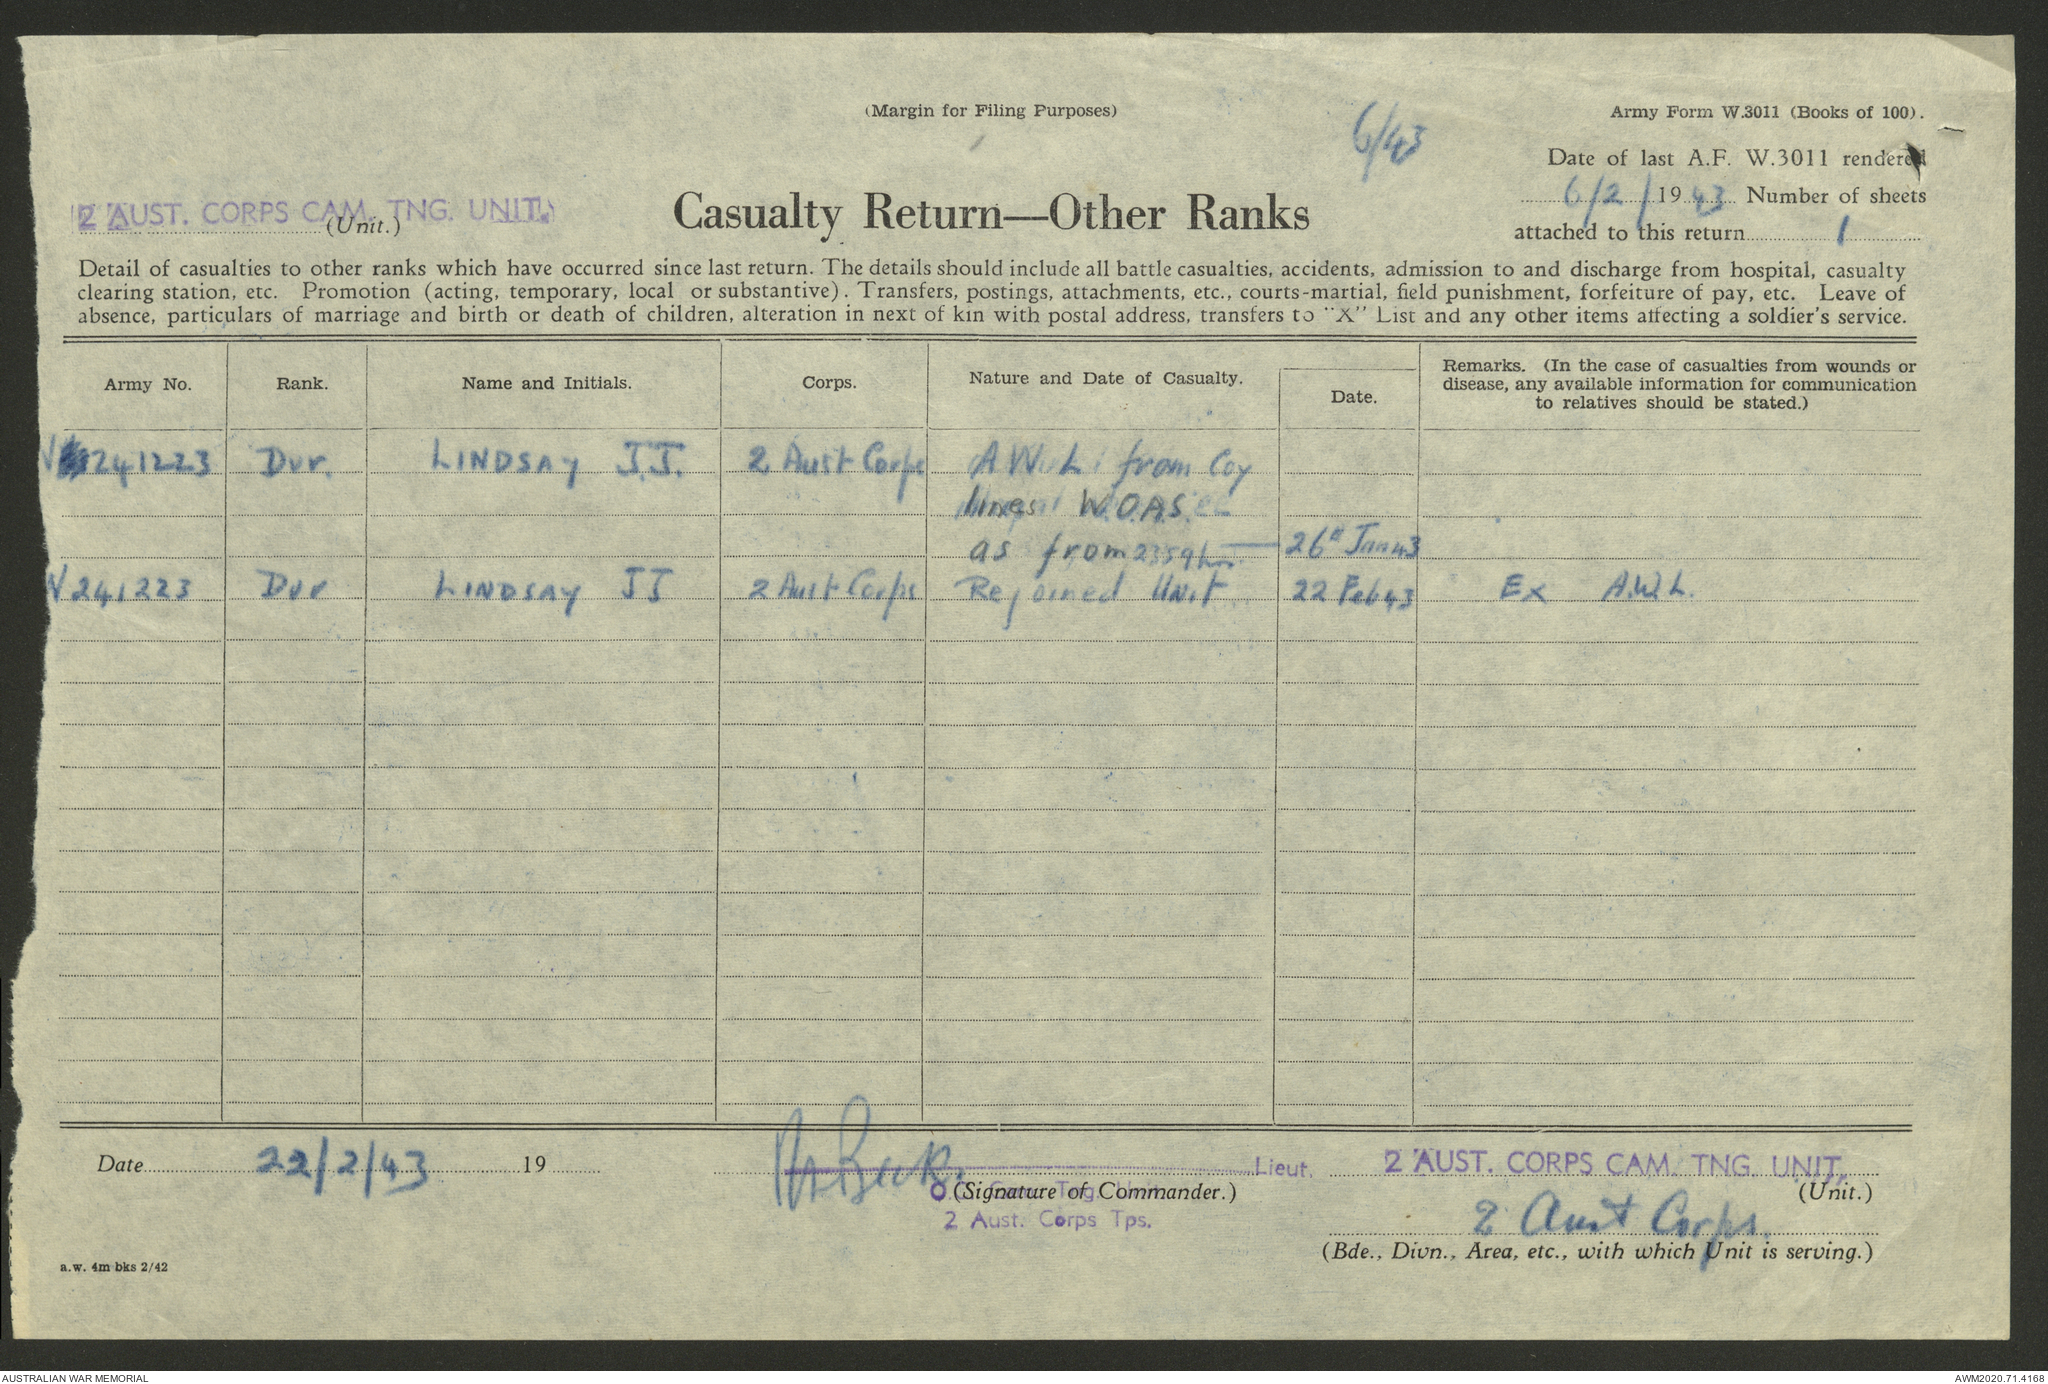 (Margin for Filing Purposes)
6/43
Army Form W.3011 (Books of 100).
Date of last A.F. W.3011 rendered
6/2/1943 Number of sheets
attached to this return 1
2 AUST. CORPS CAM. TNG. UNIT.
(Unit.)
Casualty Return—Other Ranks
Detail of casualties to other ranks which have occurred since last return. The details should include all battle casualties, accidents, admission to and discharge from hospital, casualty
clearing station, etc. Promotion (acting, temporary, local or substantive). Transfers, postings, attachments, etc., courts-martial, field punishment, forfeiture of pay, etc. Leave of
absence, particulars of marriage and birth or death of children, alteration in next of kin with postal address, transfers to "X" List and any other items affecting a soldier's service.
Army No. Rank. Name and Initials. Corps. Nature and Date of Casualty. Date. Remarks. (In the case of casualties from wounds or
disease, any available information for communication
to relatives should be stated.)
V241223 Dvr. LINDSAY J.J. 2 Aust Corps A.W.L. from Coy
lines W.O.A.S.
as from 2359 hrs 26th Jan 43
V241223 Dvr LINDSAY JJ 2 Aust Corps Rejoined Unit 22 Feb 43 Ex A.W.L.
Date 22/2/43 19
Lieut.
(Signature of Commander.)
2 Aust. Corps Tps.
2 AUST. CORPS CAM. TNG. UNIT.
(Unit.)
2 Aust Corps.
(Bde., Divn., Area, etc., with which Unit is serving.)
a.w. 4m bks 2/42
AUSTRALIAN WAR MEMORIAL
AWM2020.71.4168